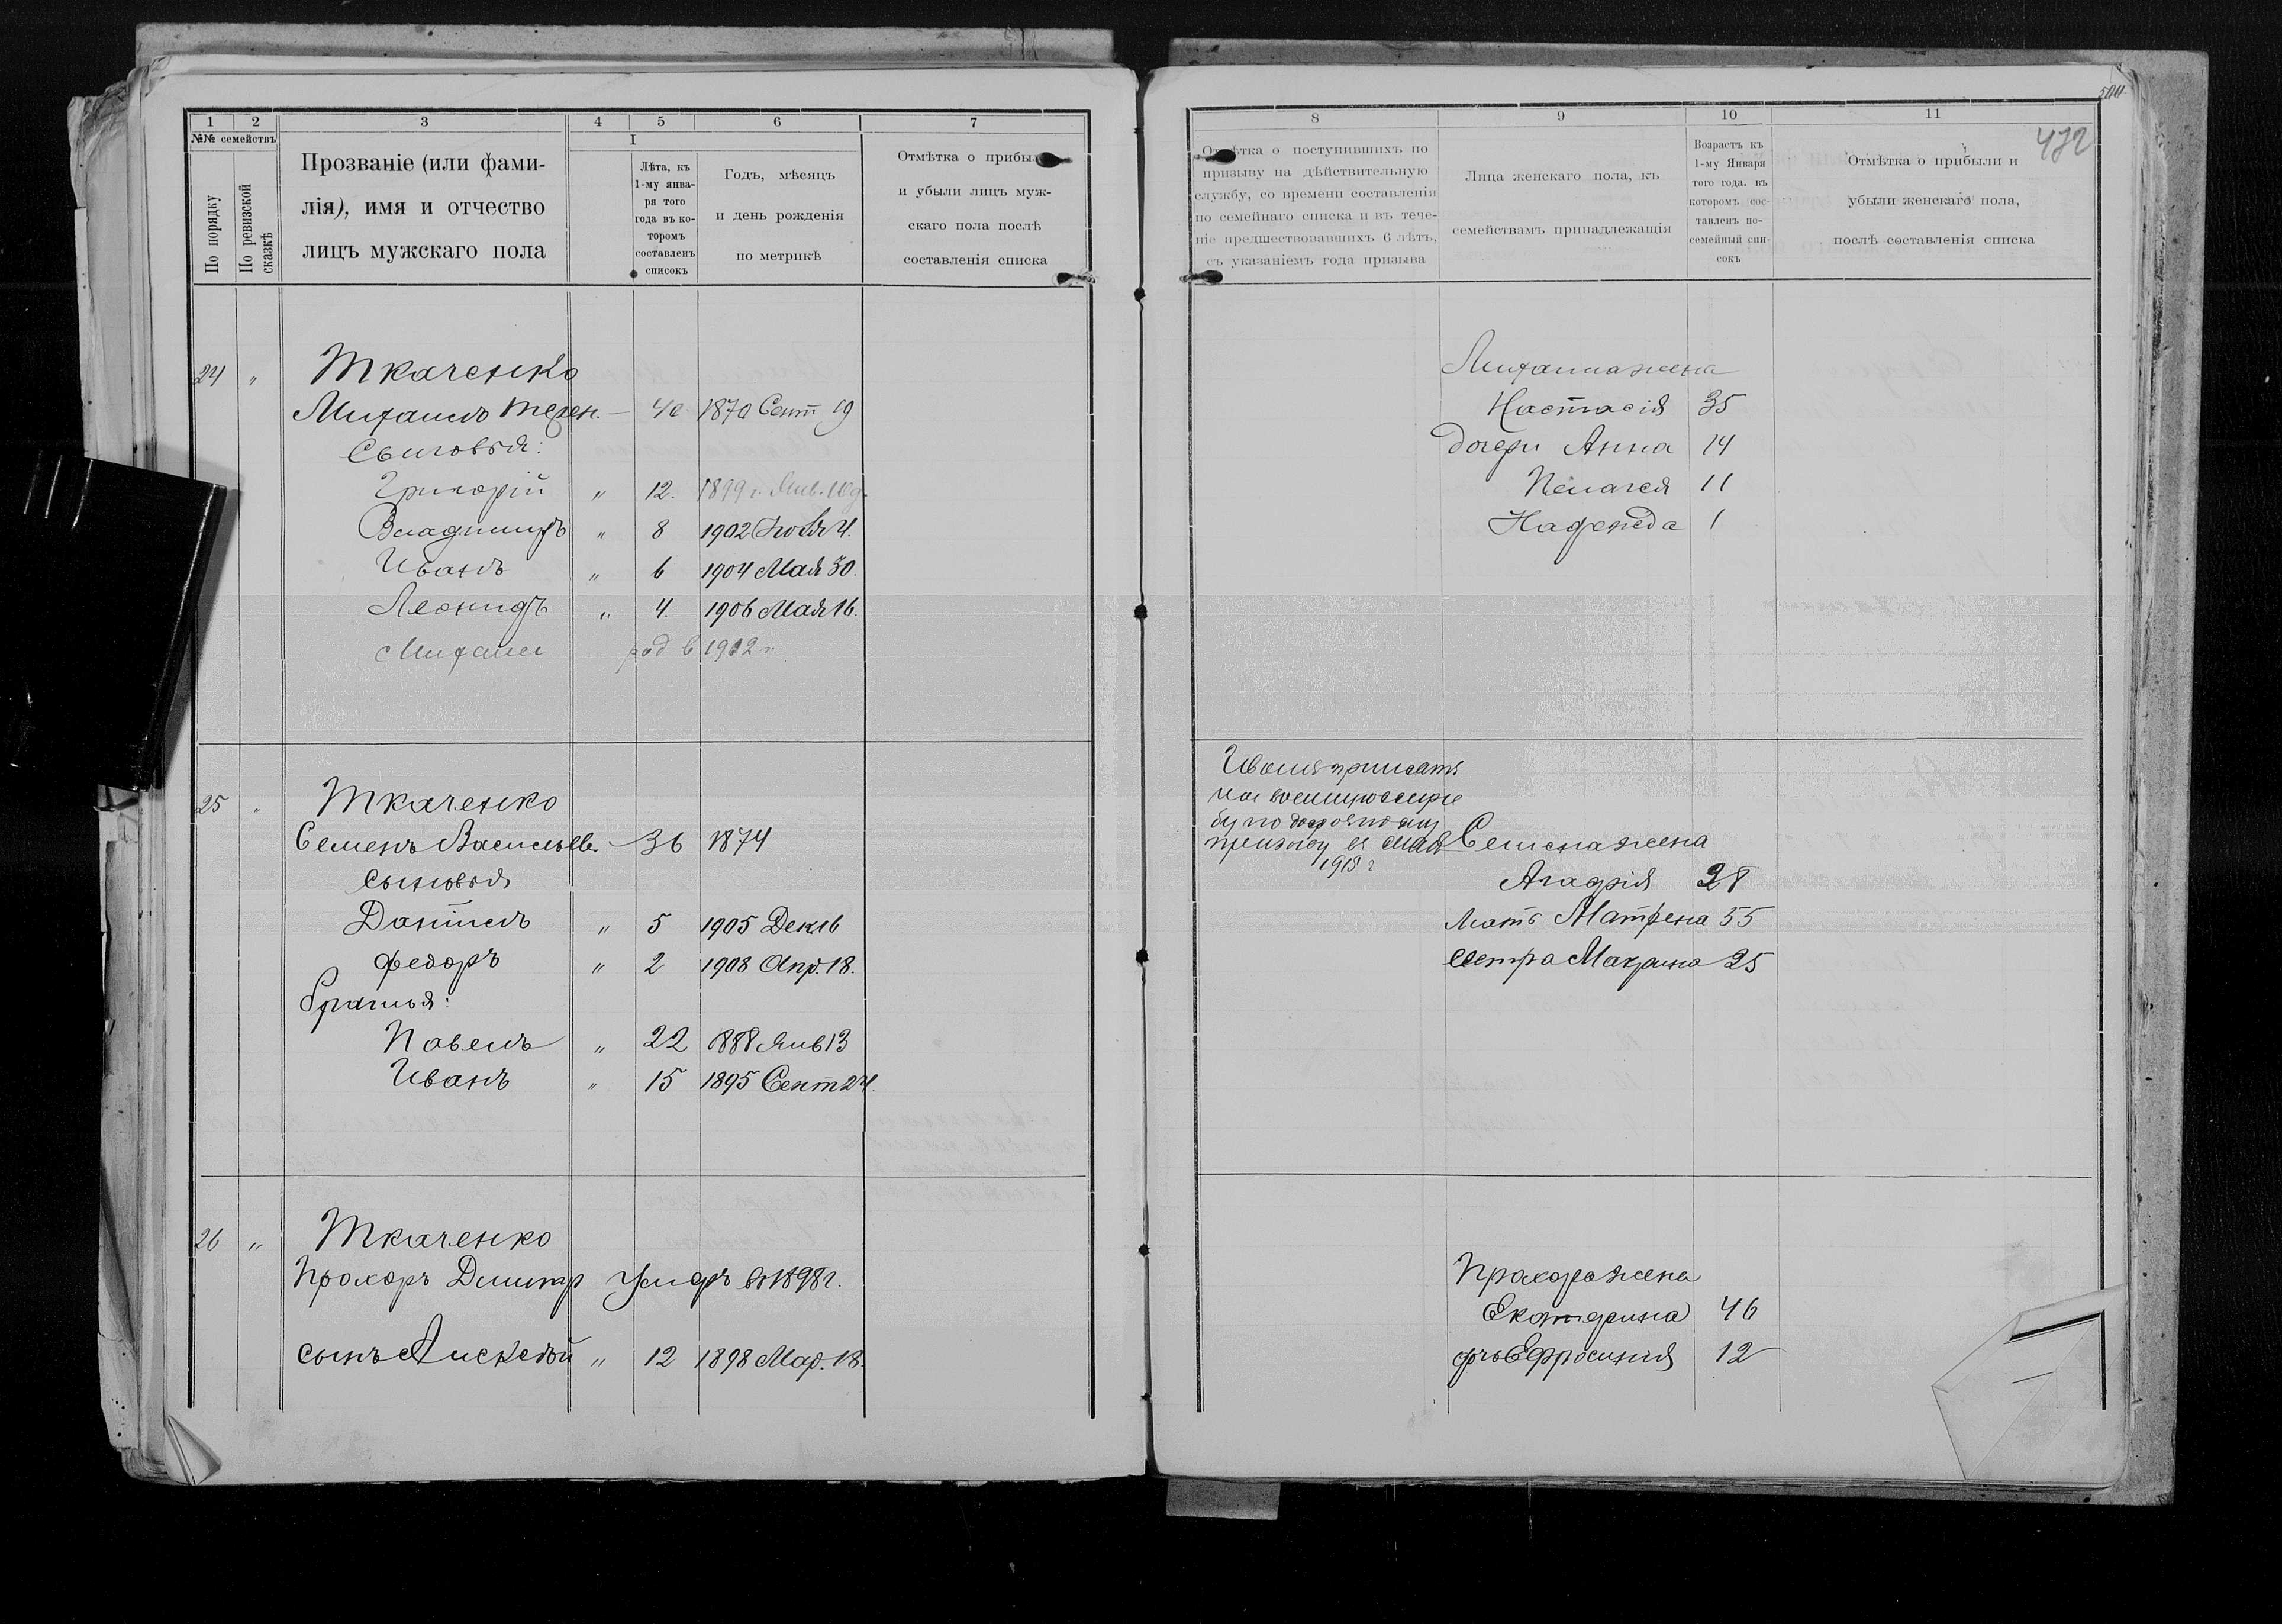 1 2 3 4 5 6 7
№№ семействъ
По порядку
По ревизской сказкѣ
Прозваніе (или фами-
лія), имя и отчество
лицъ мужскаго пола
I
Лѣта, къ
1-му янва-
ря того
года въ ко-
торомъ
составленъ
списокъ
Годъ, мѣсяцъ
и день рожденія
по метрикѣ
Отмѣтка о прибыли
и убыли лицъ муж-
скаго пола послѣ
составленія списка
24 " Ткаченко
Михаилъ — 40 1870 Сент 19
Сыновья:
Григорій " 12. 1899 г. Янв. 10 д.
Владимиръ " 8 1902 Ноября 4.
Иванъ " 6 1904 Мая 30.
Леонидъ " 4. 1906 Мая 16.
Михаил род в 1912 г
25 " Ткаченко
Семенъ Васильев. — 36 1874
сыновья
Даніилъ " 5 1905 Дек 16
Федоръ " 2 1908 Апр. 18.
братья:
Павелъ " 22 1888 Янв 13
Иванъ " 15 1895 Сент 24.
26 " Ткаченко
Прохоръ Димитр умеръ въ 1898 г.
сынъ Алексѣй " 12 1898 Мар. 18.
8 9 10 11
472
Отмѣтка о поступившихъ по
призыву на дѣйствительную
службу, со времени составленія
по семейнаго списка и въ тече-
ніе предшествовавшихъ 6 лѣтъ,
съ указаніемъ года призыва
Лица женскаго пола, къ
семействамъ принадлежащія
Возрастъ къ
1-му Января
того года. въ
которомъ сос-
тавленъ по-
семейный спи-
сокъ
Отмѣтка о прибыли и
убыли женскаго пола,
послѣ составленія списка
Михаила жена
Настасія 35
дочери Анна 14
Пелагея 11
Надежда 1
Иванъ принятъ
на военную служ
бу по досрочному
призыву въ
1915 г
Семена жена
Агафія 28
Мать Матрена 55
сестра Макрина 25
Прохора жена
Екатерина 46
дчь Ефросинія 12